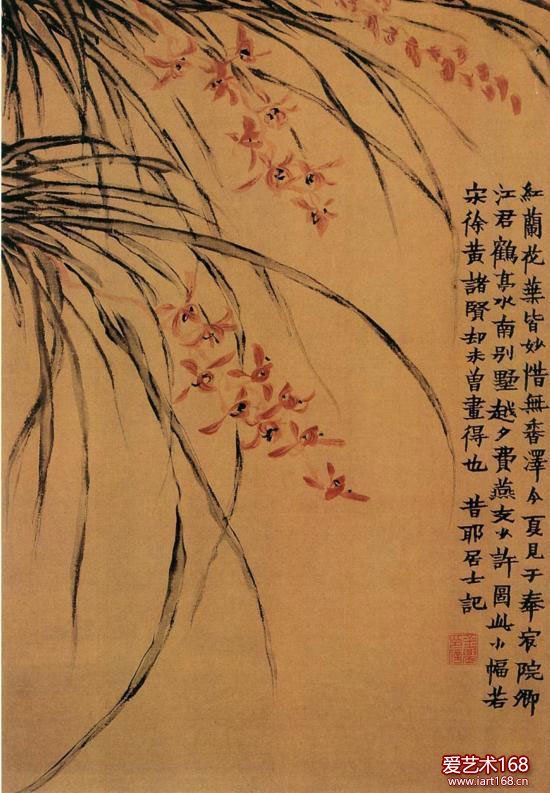 紅蘭花葉皆妙惜無香澤今夏見于奉宸院卿
江君鶴亭水南別墅越夕費燕支少許圖此小幅若
宋徐黃諸賢却未曾畫得也 昔耶居士記
爱艺术168
www.iart168.cn